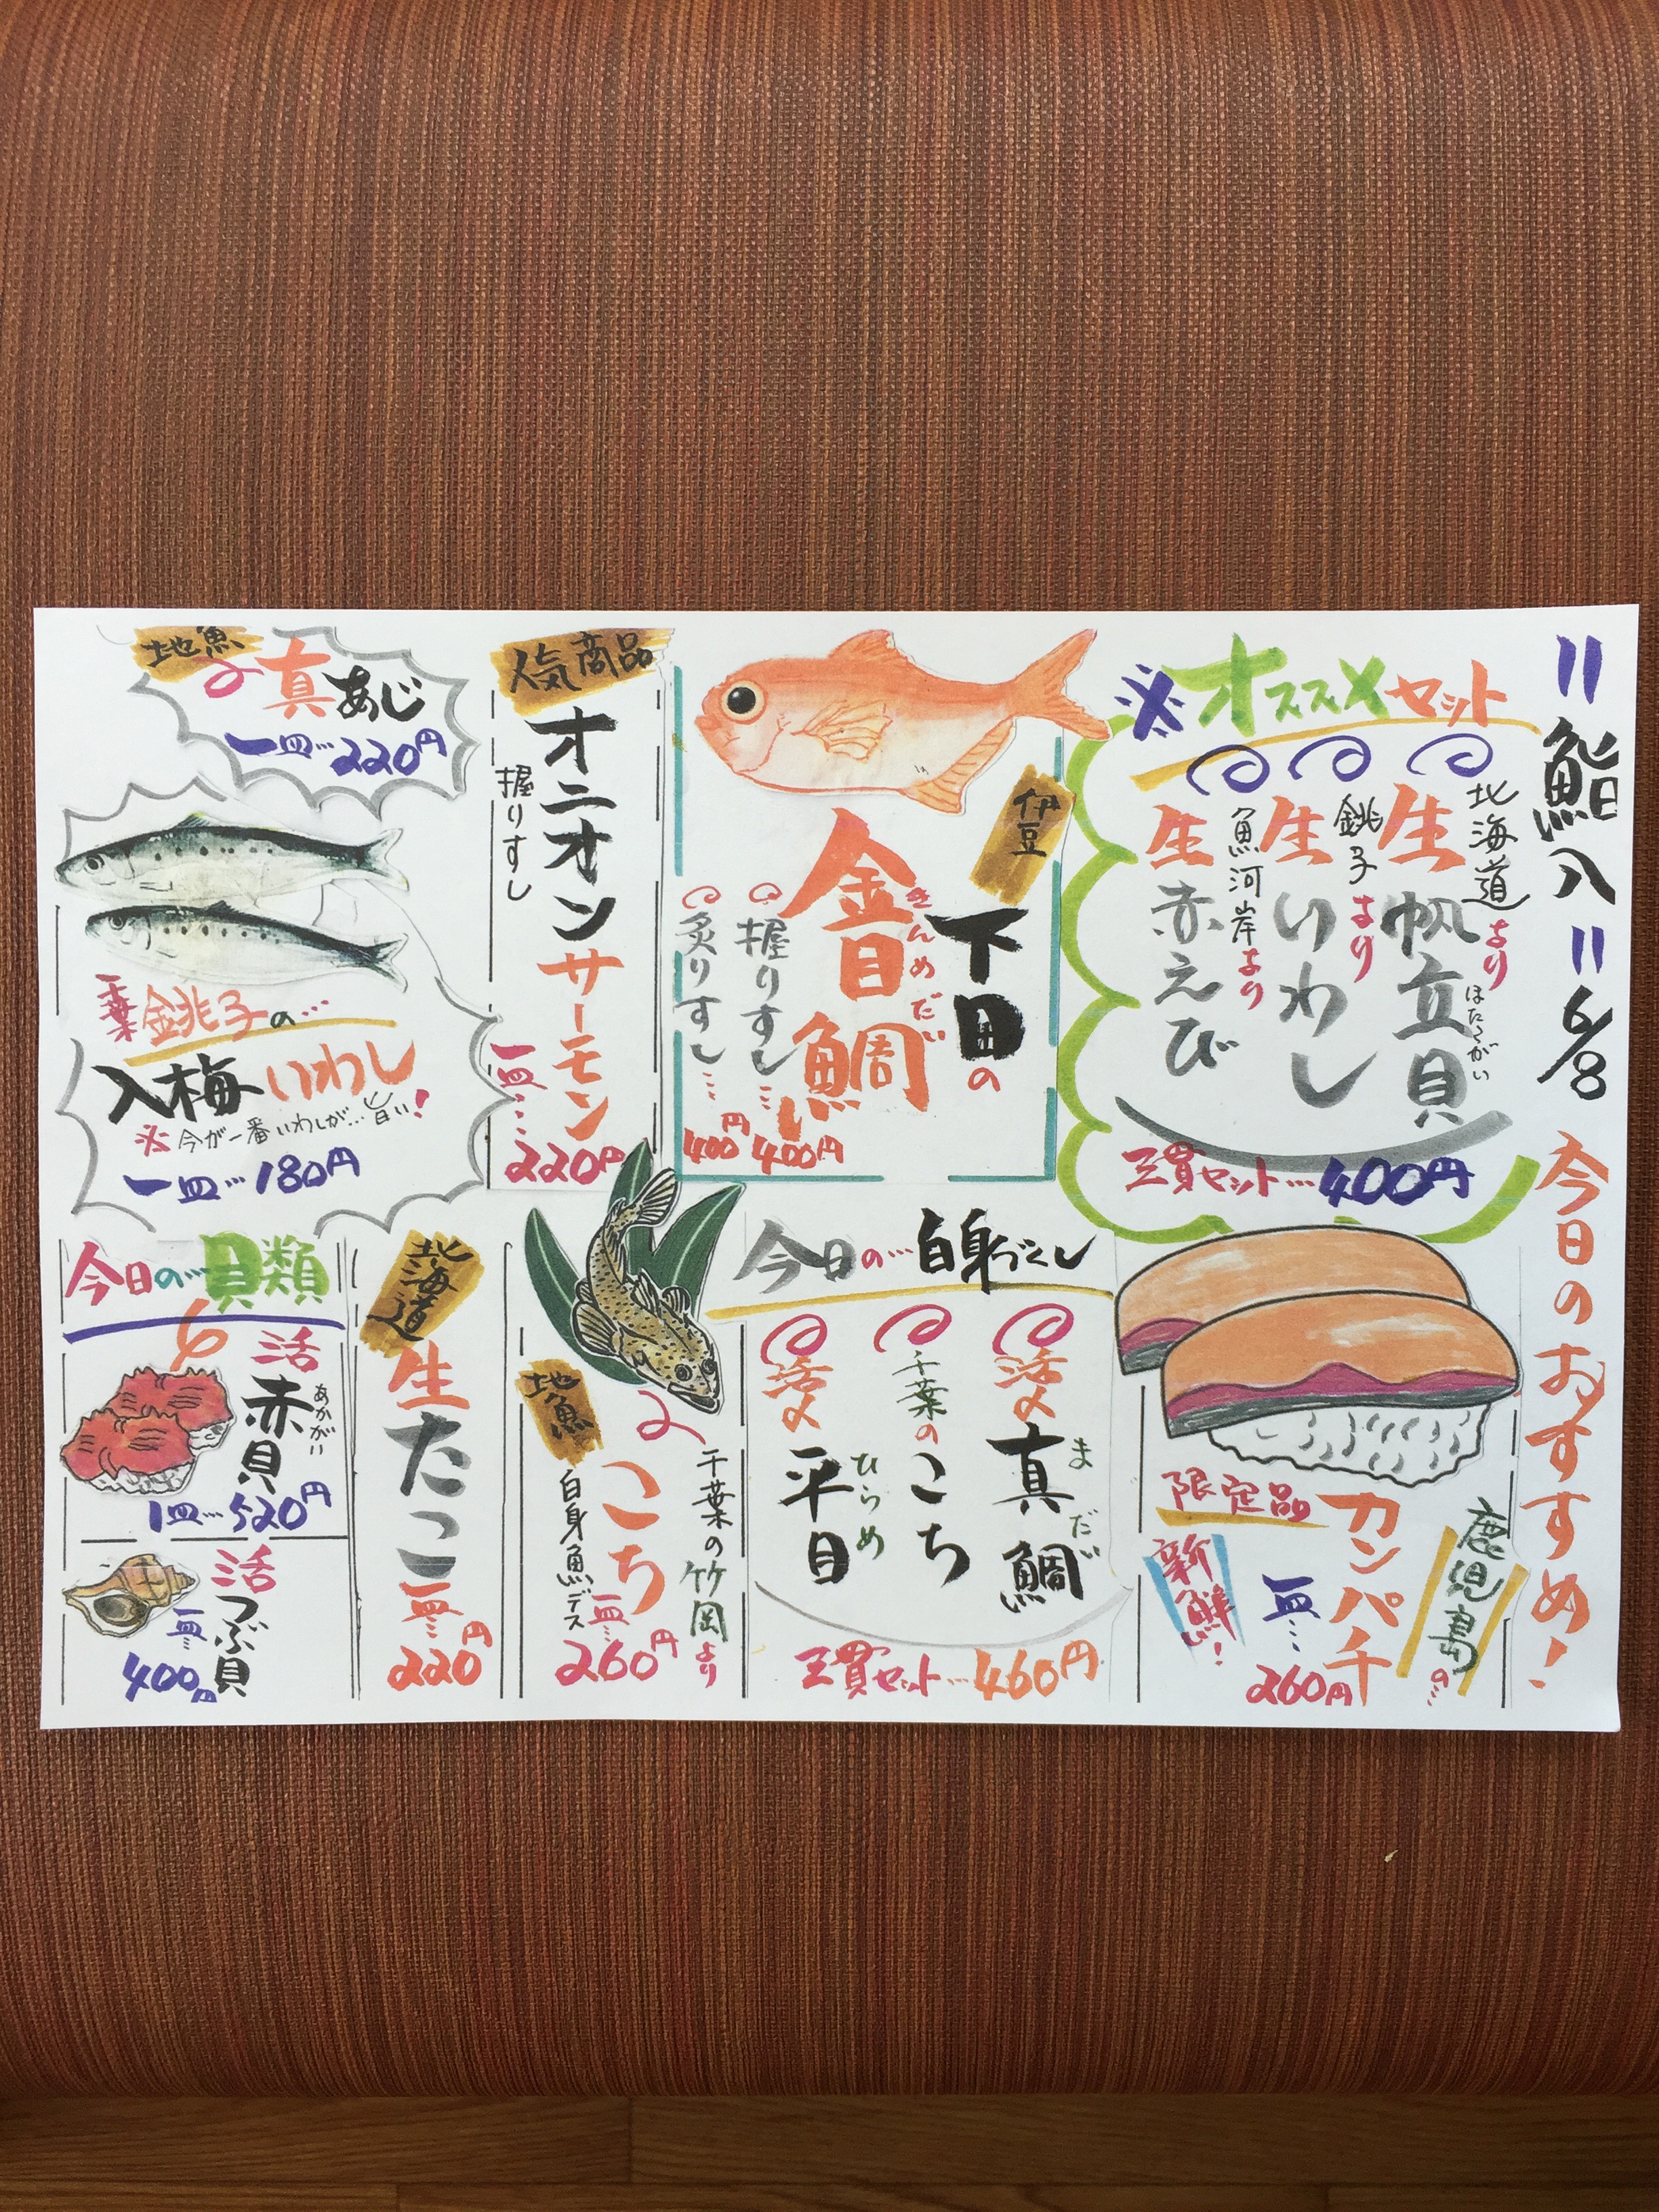 〃鮨八〃 6/8 今日のおすすめ!
※オススメセット
北海道より
生帆立貝
ほたてがい
銚子より
生いわし
魚河岸より
生赤えび
三貫セット…400円
伊豆
下田の
金目鯛
きんめだい
握りすし…400円
炙りすし…400円
人気商品
オニオンサーモン
握りすし
一皿…220円
地魚
真あじ
一皿…220円
千葉銚子の…
入梅いわし
※今が一番いわしが…旨い!
一皿…180円
鹿児島の…
カンパチ
限定品
新鮮!
一皿…260円
今日の…白身づくし
活〆真鯛
まだい
千葉のこち
活〆平目
ひらめ
三貫セット…460円
地魚
千葉の竹岡より
こち
白身魚デス
一皿…260円
北海道
生たこ
一皿…220円
今日の…貝類
活赤貝
あかがい
1皿…520円
活つぶ貝
一皿…400円